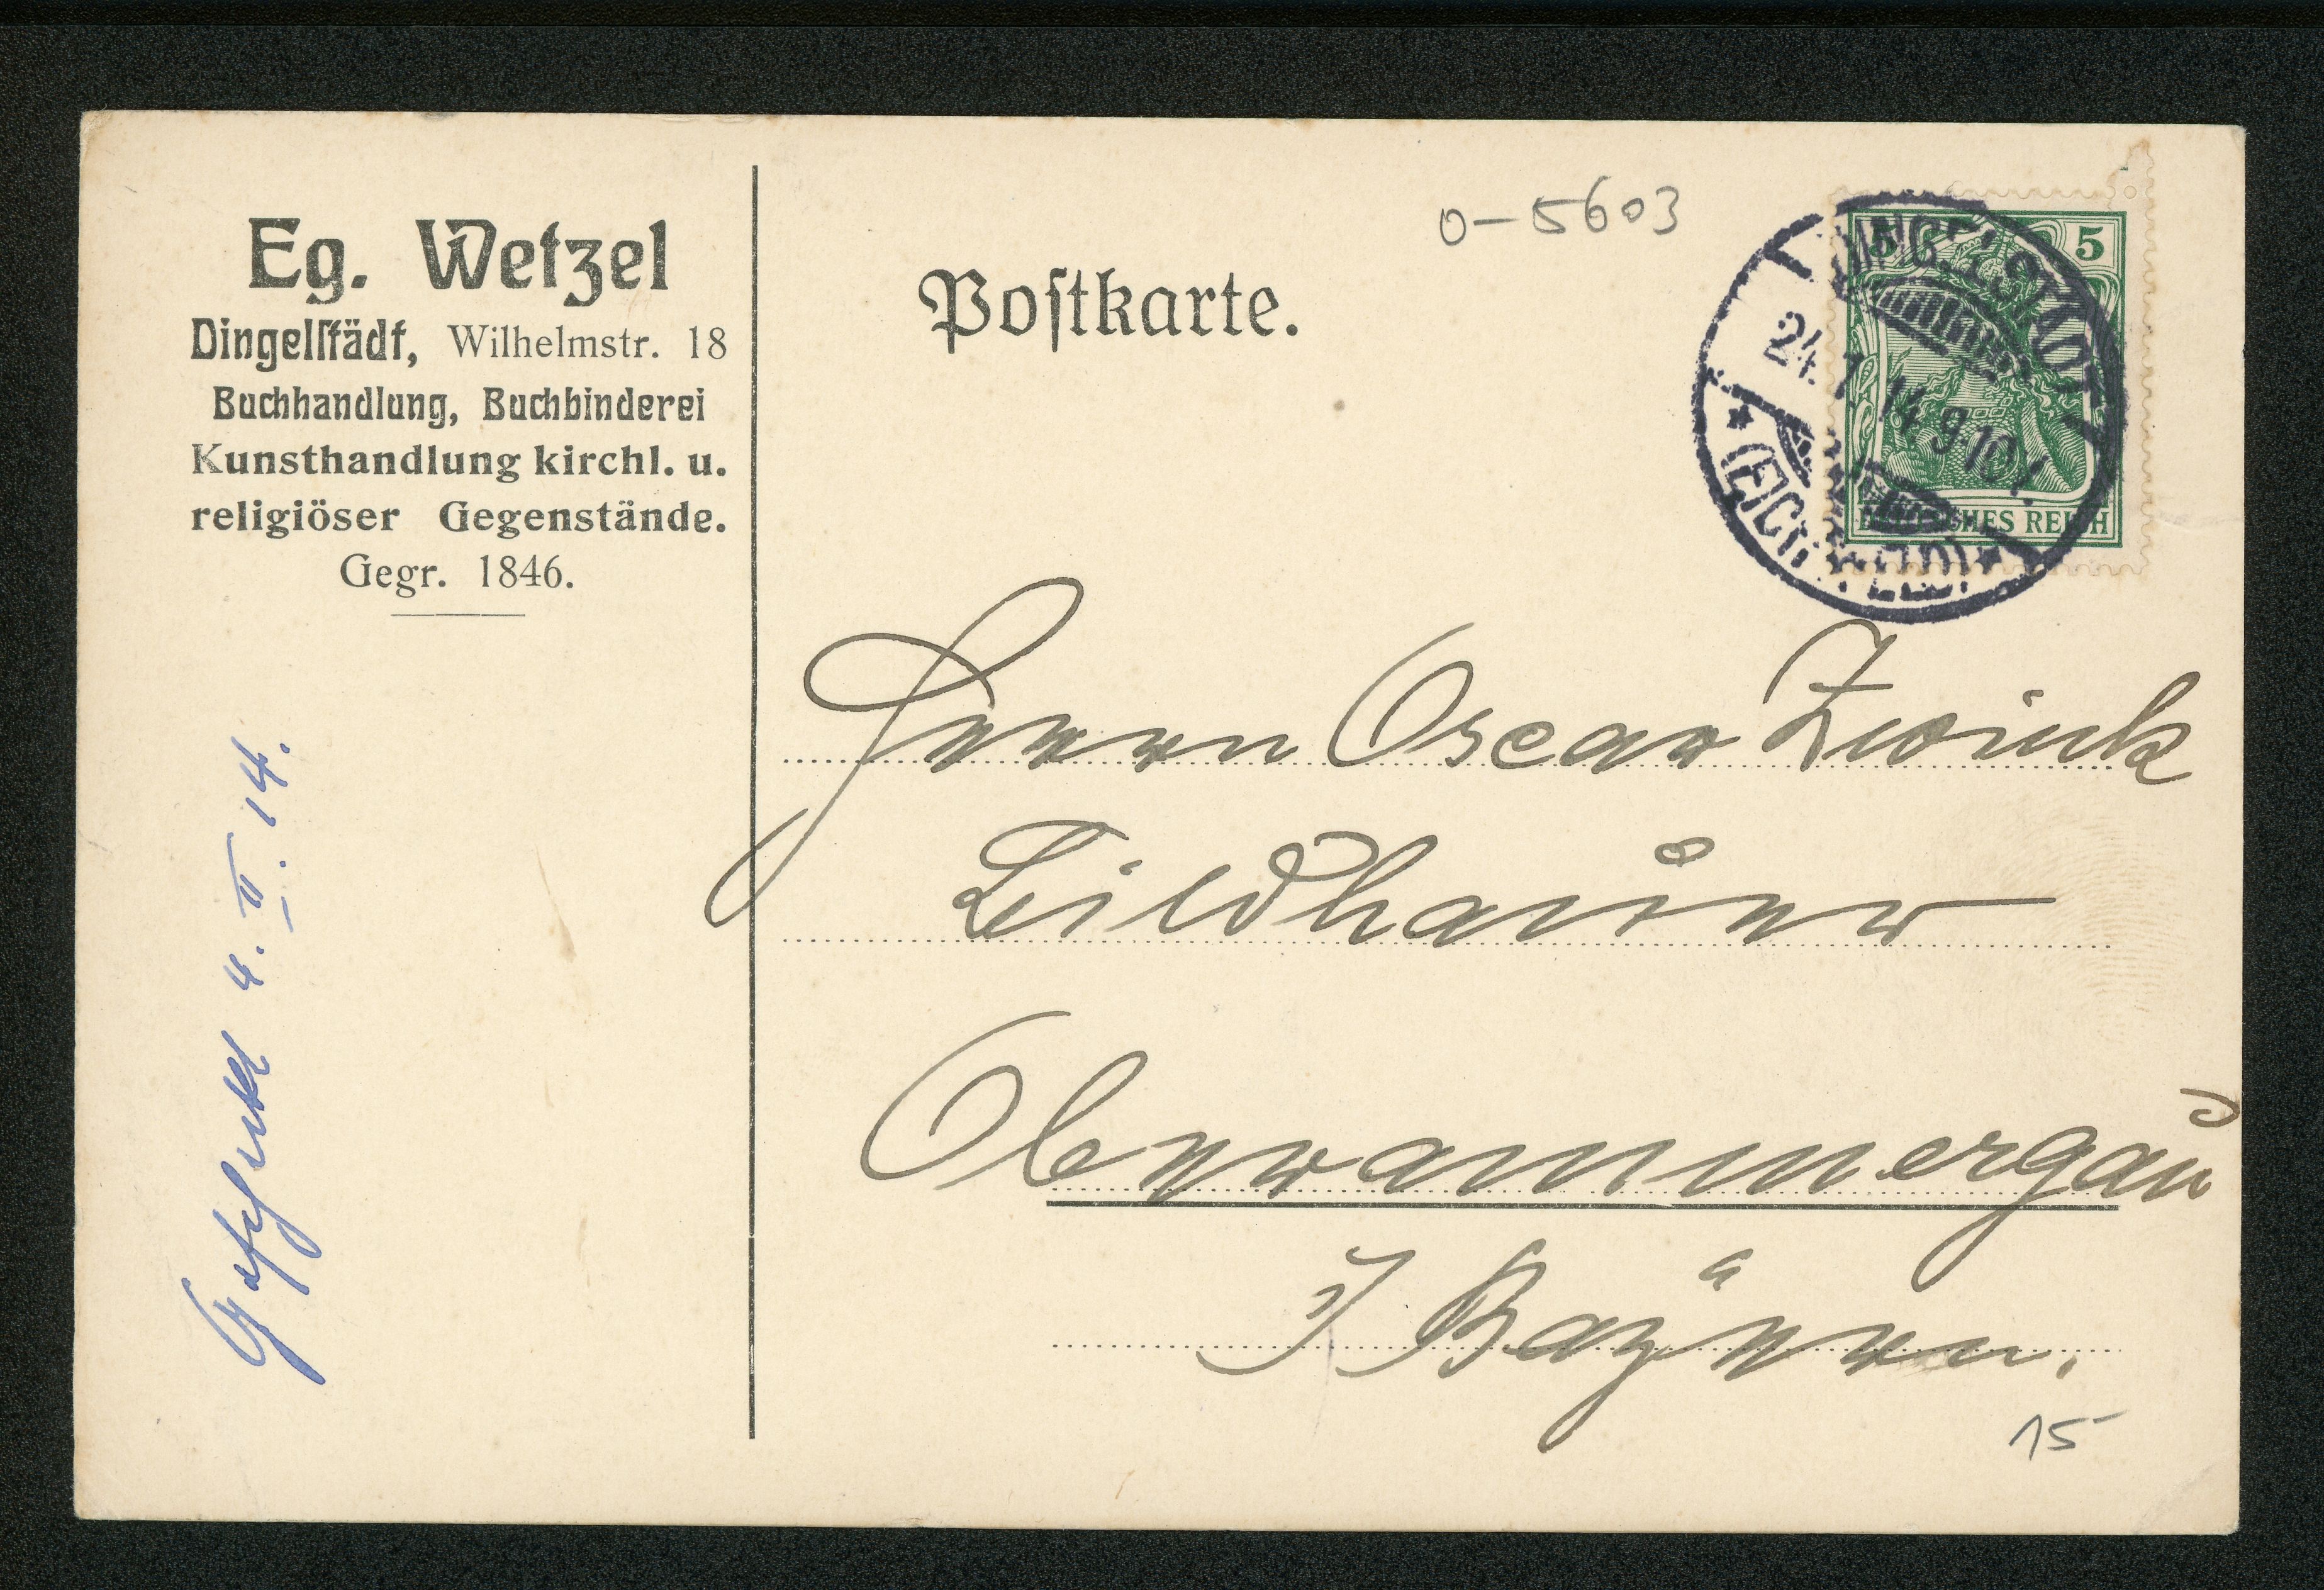 Eg. Wetzel
Dingelſtädt, Wilhelmstr. 18
Buchhandlung, Buchbinderei
Kunsthandlung kirchl. u.
religiöser Gegenstände.
Gegr. 1846.
4. II. 14.
0-5603
Poſtkarte.
5 5
DINGELSTÄDT
24. 1 14. 9-10
(EICHSFELD)
DEUTSCHES REICH
Herrn Oscar Zwink
Bildhauer
Oberammergau
i Bayern.
15